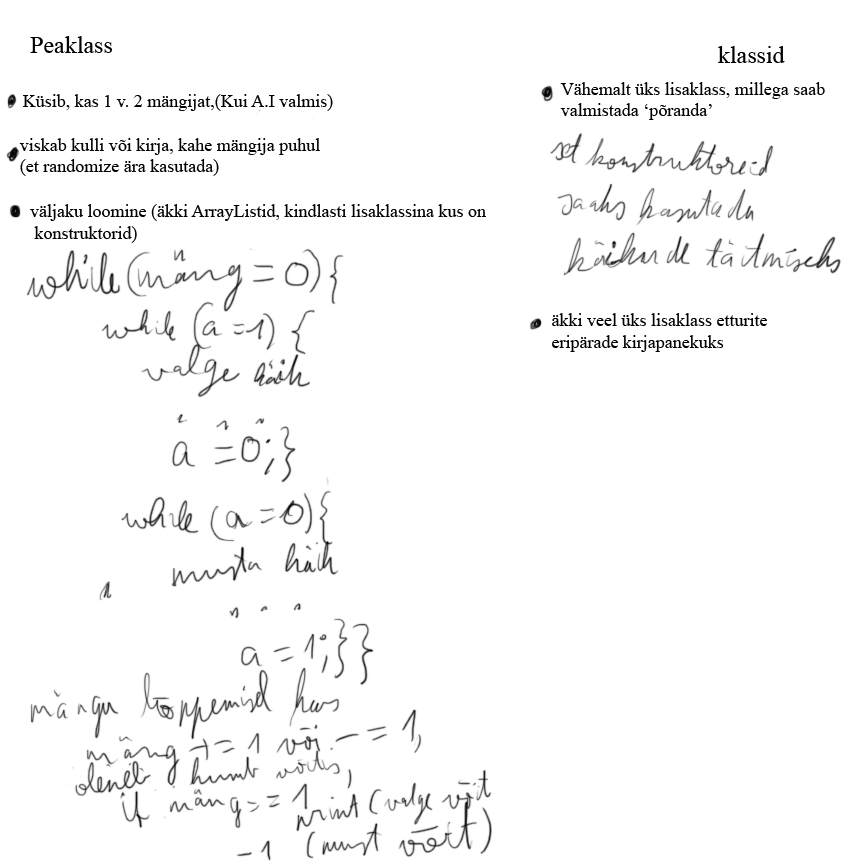 Peaklass
Küsib, kas 1 v. 2 mängijat,(Kui A.I valmis)
viskab kulli või kirja, kahe mängija puhul
(et randomize ära kasutada)
väljaku loomine (äkki ArrayListid, kindlasti lisaklassina kus on
konstruktorid)
while(mäng = 0){
while (a = 1) {
valge käik
. . .
a = 0;}
while (a = 0){
musta käik
. . .
a = 1;}}
mängu lõppemisel kas
mäng += 1 või -= 1,
oleneb kumb võitis,
if mäng == 1 print (valge võit
-1 (must võit)
klassid
Vähemalt üks lisaklass, millega saab
valmistada ‘põranda’
et konstruktoreid
saaks kasutada
käikude täitmiseks
äkki veel üks lisaklass etturite
eripärade kirjapanekuks